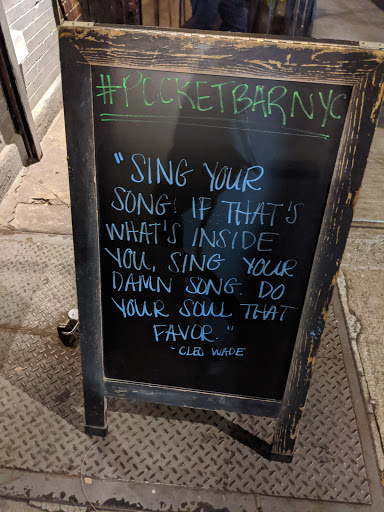 #POCKETBARNYC
"SING YOUR
SONG! IF THAT'S
WHAT'S INSIDE
YOU, SING YOUR
DAMN SONG. DO
YOUR SOUL THAT
FAVOR."
-CLEO WADE